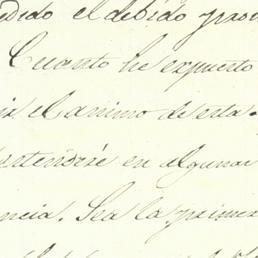 dido el debido prov
Cuanto he expuesto
el animo de esta
etenderé en algunas
ncia. Sea la primer